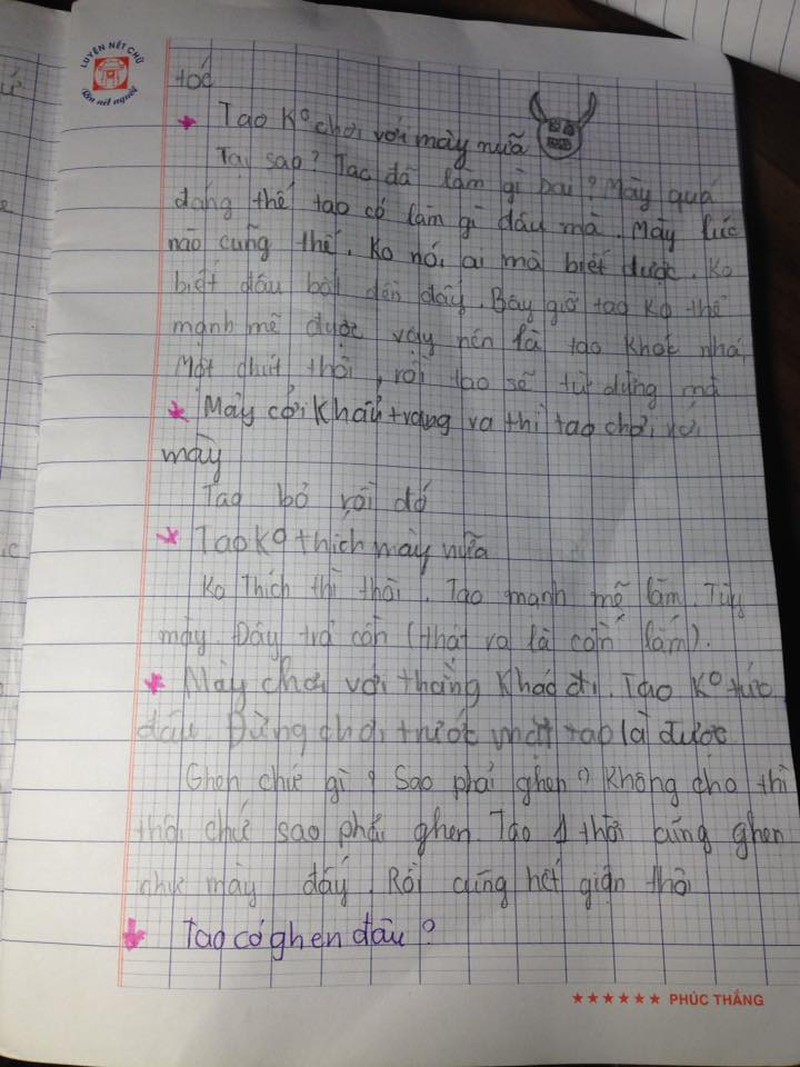 LUYỆN NÉT CHỮ
Rèn nết người
tóc
Tao Ko chơi với mày nữa
Tại sao? Tao đã làm gì sai? Mày quá
đáng thế tao có làm gì đâu mà. Mày lúc
nào cũng thế. Ko nói ai mà biết được. Ko
biết đâu bắt đền đấy. Bây giờ tao ko thể
mạnh mẽ được vậy nên là tao khóc nhá,
Một chút thôi, rồi tao sẽ tự đứng mà
Mày cởi khẩu trang ra thì tao chơi với
mày
Tao bỏ rồi đó
Tao Ko thích mày nữa
Ko Thích thì thôi. Tao mạnh mẽ lắm. Tùy
mày. Đây trả cần (thật ra là cần lắm).
Mày chơi với thằng Khác đi. Tao Ko tức
đâu. Đừng chơi trước mặt tao là được
Ghen chứ gì? Sao phải ghen? Không cho thì
thôi chứ sao phải ghen. Tao 1 thời cũng ghen
chư mày đấy. Rồi cũng hết giận thôi
Tao có ghen đâu?
★★★★★★ PHÚC THẮNG